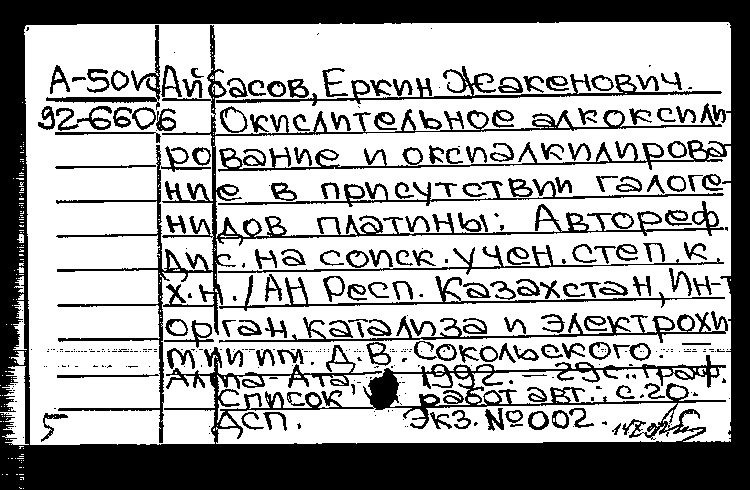 А-50к Айбасов, Еркин Жакенович.
92-6606 Окислительное алкоксили-
рование и оксиалкилирова-
ние в присутствии галоге-
нидов платины: Автореф.
дис. на соиск. учен. степ. к.
х.н. / АН Респ. Казахстан, Ин-т
орган. катализа и электрохи-
мии им. Д.В. Сокольского. —
Алма-Ата, 1992. — 29с.: граф.
Список работ авт.: с.20.
5 ДСП. Экз. №002.